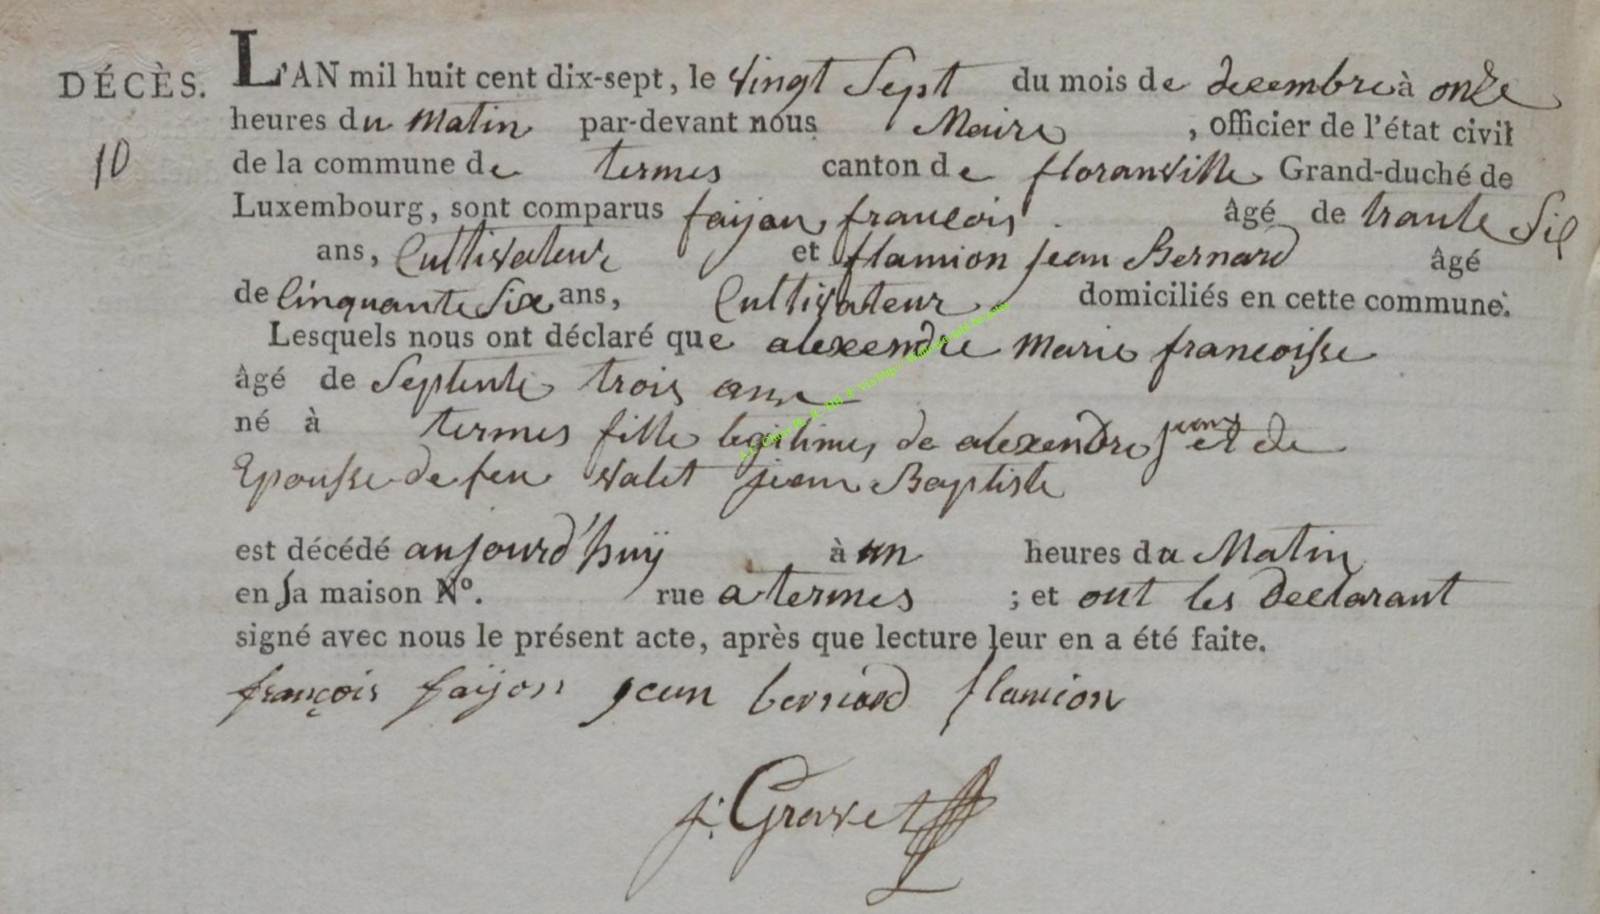 DÉCÈS.
10
L'AN mil huit cent dix-sept, le vingt Sept du mois de decembre à onze
heures du Matin par-devant nous Maire , officier de l'état civil
de la commune de termes canton de floranville Grand-duché de
Luxembourg, sont comparus faijon françois âgé de trante Six
ans, Cultivateur et flamion jean Bernard âgé
de Cinquante Six ans, Cultivateur domiciliés en cette commune.
Lesquels nous ont déclaré que alexendre Marie francoisse
âgé de Septente trois ans
né à termes fille legitime de alexendre jean et de
Epousse de feu valet jean Baptiste
est décédé aujourd'huÿ à un heures du Matin
en Sa maison N°. rue a termes ; et ont les declarant
signé avec nous le présent acte, après que lecture leur en a été faite.
françois faijon jean bernard flamion
j: Gravet